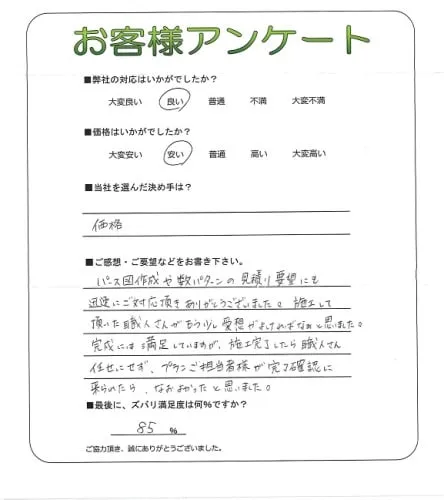 お客様アンケート
■弊社の対応はいかがでしたか？
大変良い 良い 普通 不満 大変不満
■価格はいかがでしたか？
大変安い 安い 普通 高い 大変高い
■当社を選んだ決め手は？
価格
■ご感想・ご要望などをお書き下さい。
パース図作成や数パターンの見積り要望にも
迅速にご対応頂きありがとうございました。施工して
頂いた職人さんがもう少し愛想がよければなぁと思いました。
完成には満足していますが、施工完了したら職人さん
任せにせず、プランご担当者様が完了確認に
来られたら、なおよかったと思いました。
■最後に、ズバリ満足度は何％ですか？
85 %
ご協力頂き、誠にありがとうございました。